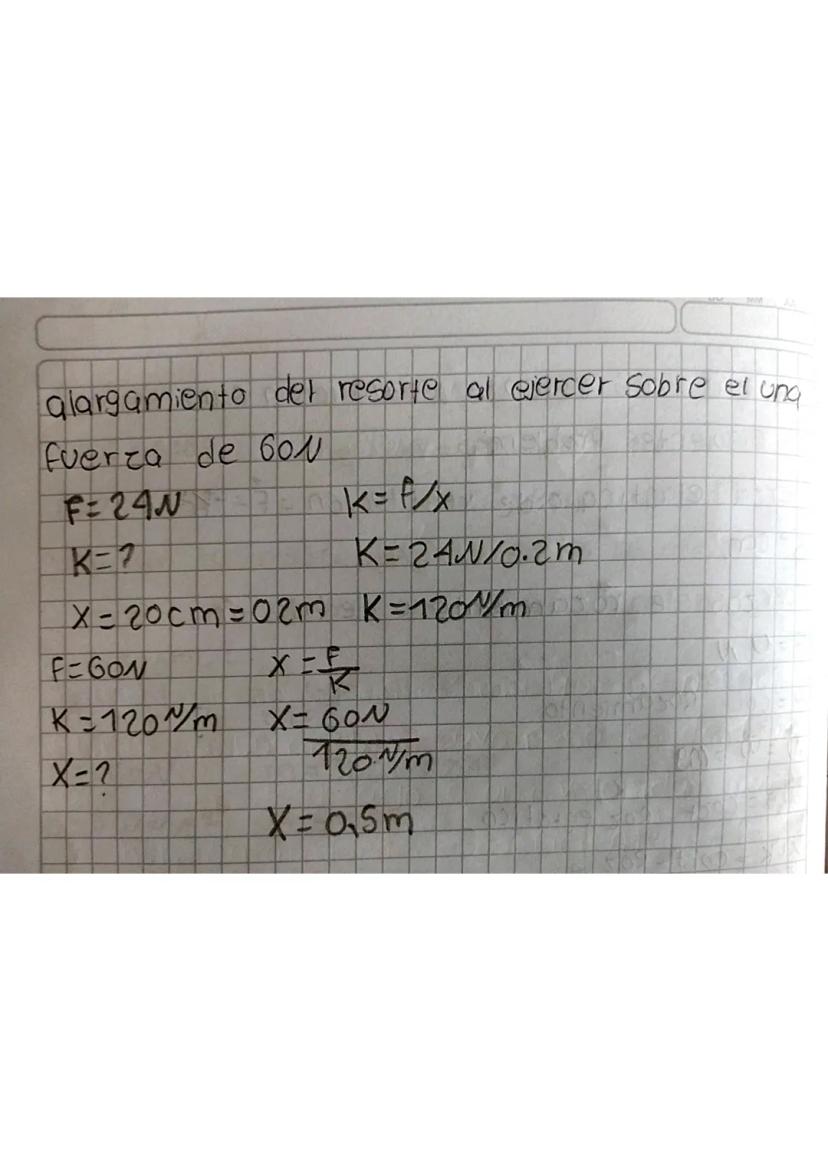 alargamiento del resorte al ejercer sobre el una
fuerza de 60N
F=24N K=F/x
K=? K=24N/0.2m
X=20cm=02m K=120N/m
F=60N X=F/K
K=120N/m X=60N/120N/m
X=?
X=0,5m